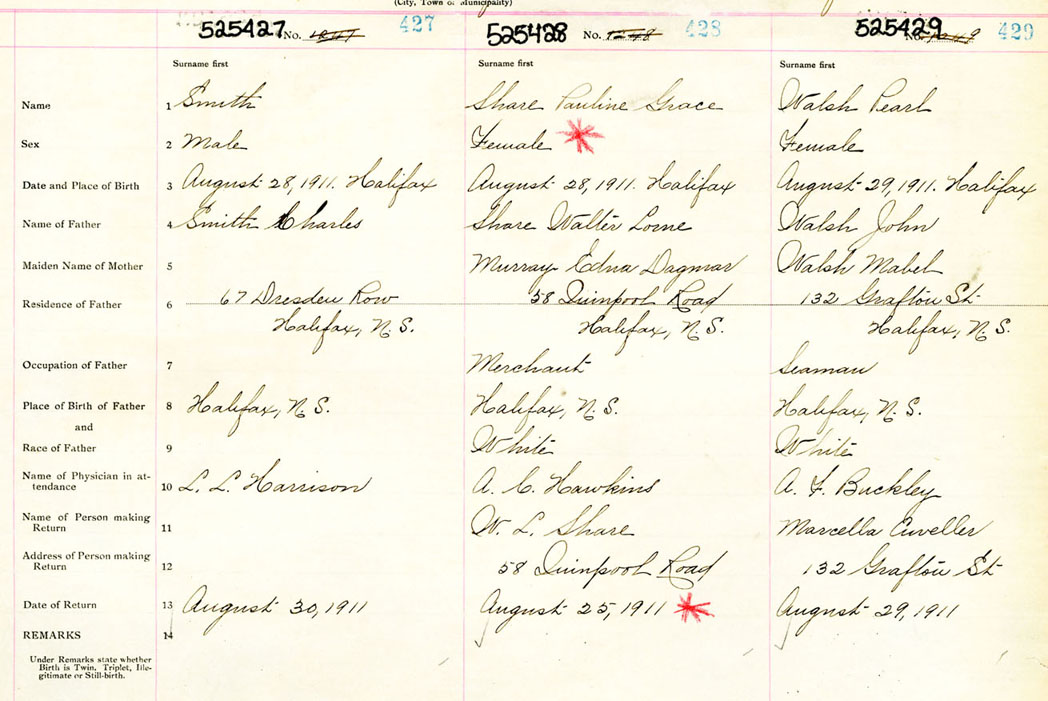 (City, Town or Municipality)
525427 No. 427
525428 No. 1248 428
525429 No. 1249 429
Surname first Surname first Surname first
Name 1 Smith Share Pauline Grace Walsh Pearl
Sex 2 Male Female Female
Date and Place of Birth 3 August 28, 1911. Halifax August 28, 1911. Halifax August 29, 1911. Halifax
Name of Father 4 Smith Charles Share Walter Lorne Walsh John
Maiden Name of Mother 5 Murray Edna Dagmar Walsh Mabel
Residence of Father 6 67 Dresden Row 58 Quinpool Road 132 Grafton St
Halifax, N.S. Halifax, N.S. Halifax, N.S.
Occupation of Father 7 Merchant Seaman
Place of Birth of Father 8 Halifax, N.S. Halifax, N.S. Halifax, N.S.
and
Race of Father 9 White White
Name of Physician in at-
tendance 10 L. L. Harrison A. C. Hawkins A. F. Buckley
Name of Person making
Return 11 W. L. Share Marcella Cuveller
Address of Person making
Return 12 58 Quinpool Road 132 Grafton St
Date of Return 13 August 30, 1911 August 25, 1911 August 29, 1911
REMARKS 14
Under Remarks state whether
Birth is Twin, Triplet, Ille-
gitimate or Still-birth.